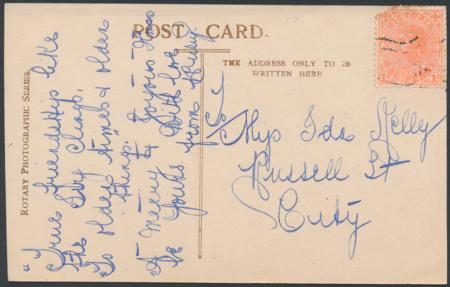 POST CARD.
THE ADDRESS ONLY TO BE
WRITTEN HERE
ROTARY PHOTOGRAPHIC SERIES.
VICTORIA
"True friendship like
the Ivy Clings,
To olden times & olden
things."
A Merry & Joyous Xmas
Yours With love
from
Miss Ida Kelly
Russell St
City